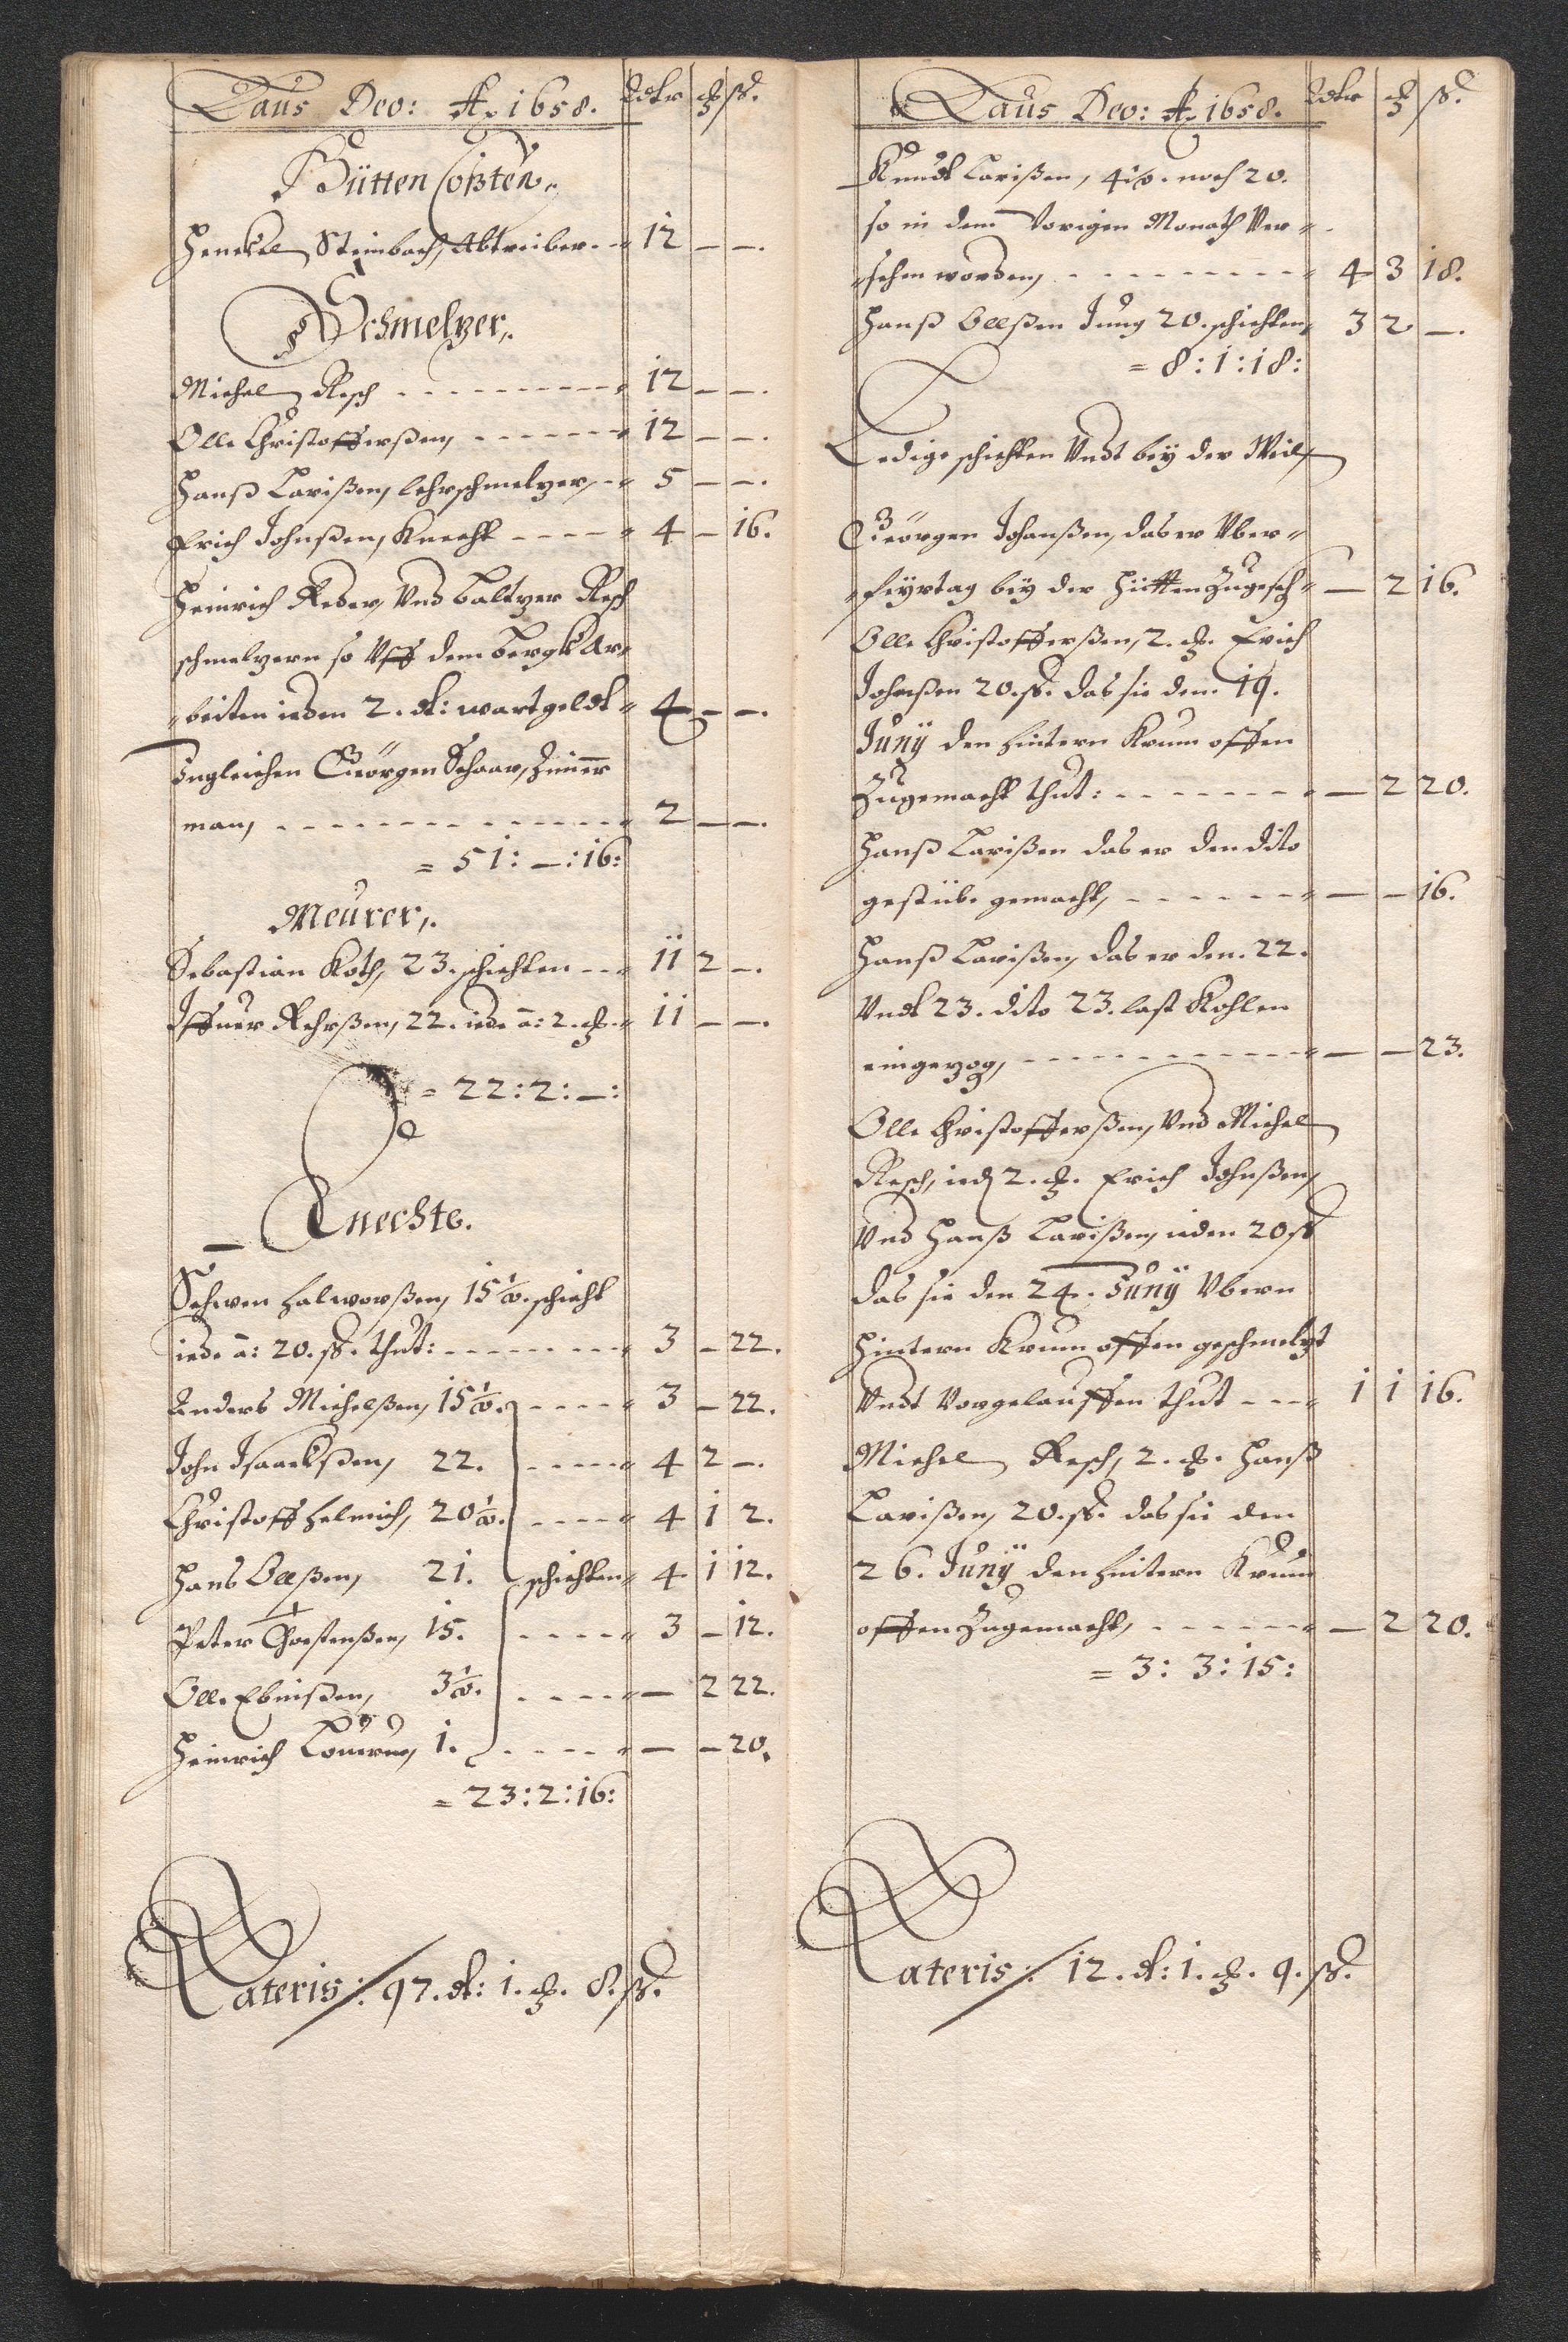 Laus Deo: Ao 1658. Rdtr ƶ ß.
Hütten Costen,
Henckel Steinbach, Abtreiber. - 12 — —.
Schmelzer,
Michel Resch - - - - - 12 — —.
Olle Christoffersßen, - - - - - 12 — —.
Hanß Larißen, lehrschmelzer, - 5 — —.
Erich Johnßen, Knecht - - - - 4 — 16.
Heinrich Reder, Vnd Baltzer Resch
schmelzern so Vff dem bergk Ar=
=beiten ieden 2. dt: wartgeldt 4 — —.
Ingleichen Geörgen Schaar, Zimer
man, - - - - - 2 — —.
= 51: —: 16:
Meurer,.
Sebastian Koth, 23. schichten - - 11 2 —.
22. iede a: 2. ƶ. 11 — —.
= 22: 2: —:
Knechte.
Schwen Halworßen, 15½. schicht
iede a: 20. ß. thut: - - - - - 3 — 22.
Anders Michelßen, 15½. - - - - 3 — 22.
John Isaackßen, 22. - - - - 4 2 —.
Christoff Helmich, 20½. - - - - 4 1 2.
Hans Olßen, 21. schichten 4 1 12.
Peter Thostenßen, 15. - - - - 3 — 12.
Olle Ebnißen, 3½. - - - - — 2 22.
Heinrich 1. - - - - — — 20.
= 23: 2: 16:
Lateris: 97. dt: 1. ƶ. 8. ß.
Laus Deo: Ao 1658. Rdtr ƶ ß.
Knudt Larißen, 4½. noch 20.
so in dem Vorigen Monath Ver=
=sehen worden, - - - - - 4 3 18.
Hanß Olßen Jung 20. schichten, 3 2 —.
= 8: 1: 18:
Ledige schichten Vndt bey der Weil
Geörgen Johanßen, das er Vber=
=feyrtag bey der Hütten Zugesch= — 2 16.
Olle Christoffersßen, 2. ƶ. Erich
Johnßen 20. ß. das sie den 19.
Juny den hintern Krum offen
Zugemacht thut: - - - - - — 2 20.
Hanß Larißen das er den dito
gestübe gemacht, - - - - - — — 16.
Hanß Larißen, das er den. 22.
Vndt 23. dito 23. last Kohlen
eingezog, - - - - - — — 23.
Olle Christoffersßen, Vnd Michel
Resch, ied 2. ƶ. Erich Johnßen,
Vnd Hanß Larißen, ieden 20 ß
das sie den 24. Juny Vbern
hintern Krum offen geschmelzt
Vndt Vorgelauffen thut - - - 1 1 16.
Michel Resch, 2. ƶ. Hanß
Larißen, 20. ß. das sie den
26. Juny den hintern Krum
offen Zugemacht, - - - - - — 2 20.
= 3: 3: 15:
Lateris: 12. dt: 1. ƶ. 9. ß.